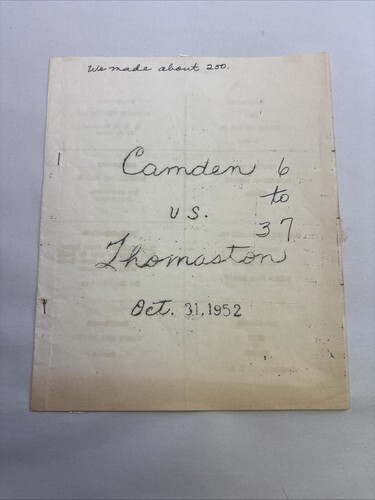 We made about 200.
Camden 6
to
vs.
37
Thomaston
Oct. 31, 1952